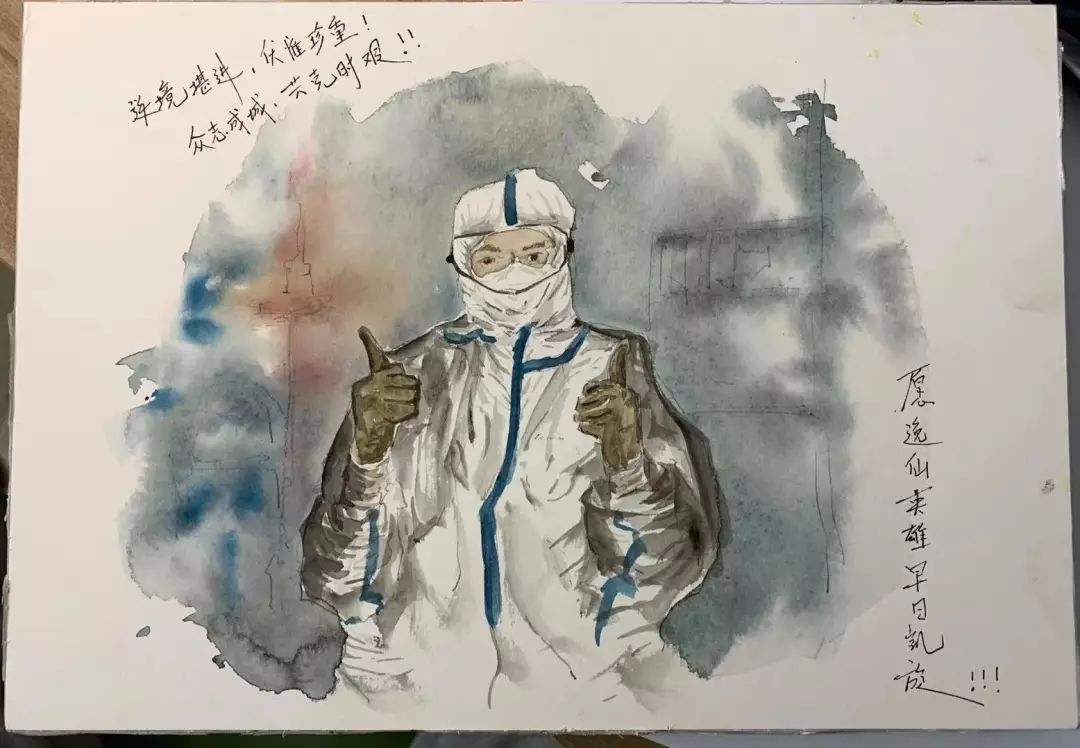 逆境堪进,伏惟珍重!
众志成城,共克时艰!!
愿逸仙英雄早日凯旋!!!